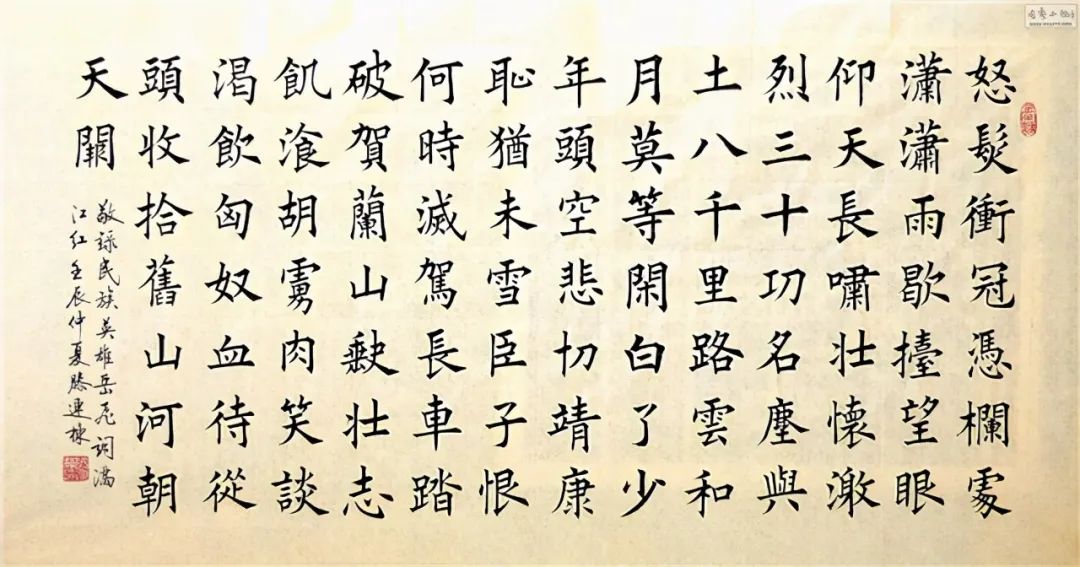 怒髮衝冠憑欄處
瀟瀟雨歇擡望眼
仰天長嘯壯懷激
烈三十功名塵與
土八千里路雲和
月莫等閑白了少
年頭空悲切靖康
恥猶未雪臣子恨
何時滅駕長車踏
破賀蘭山缺壯志
飢湌胡虜肉笑談
渴飲匈奴血待從
頭收拾舊山河朝
天闕
敬録民族英雄岳飛詞滿
江紅 壬辰仲夏滕連棣